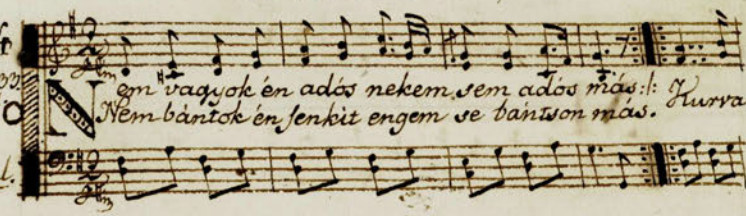 Nem vagyok én adós nekem sem adós más:|: Kurva
Nem bántok én senkit engem se bántson más.